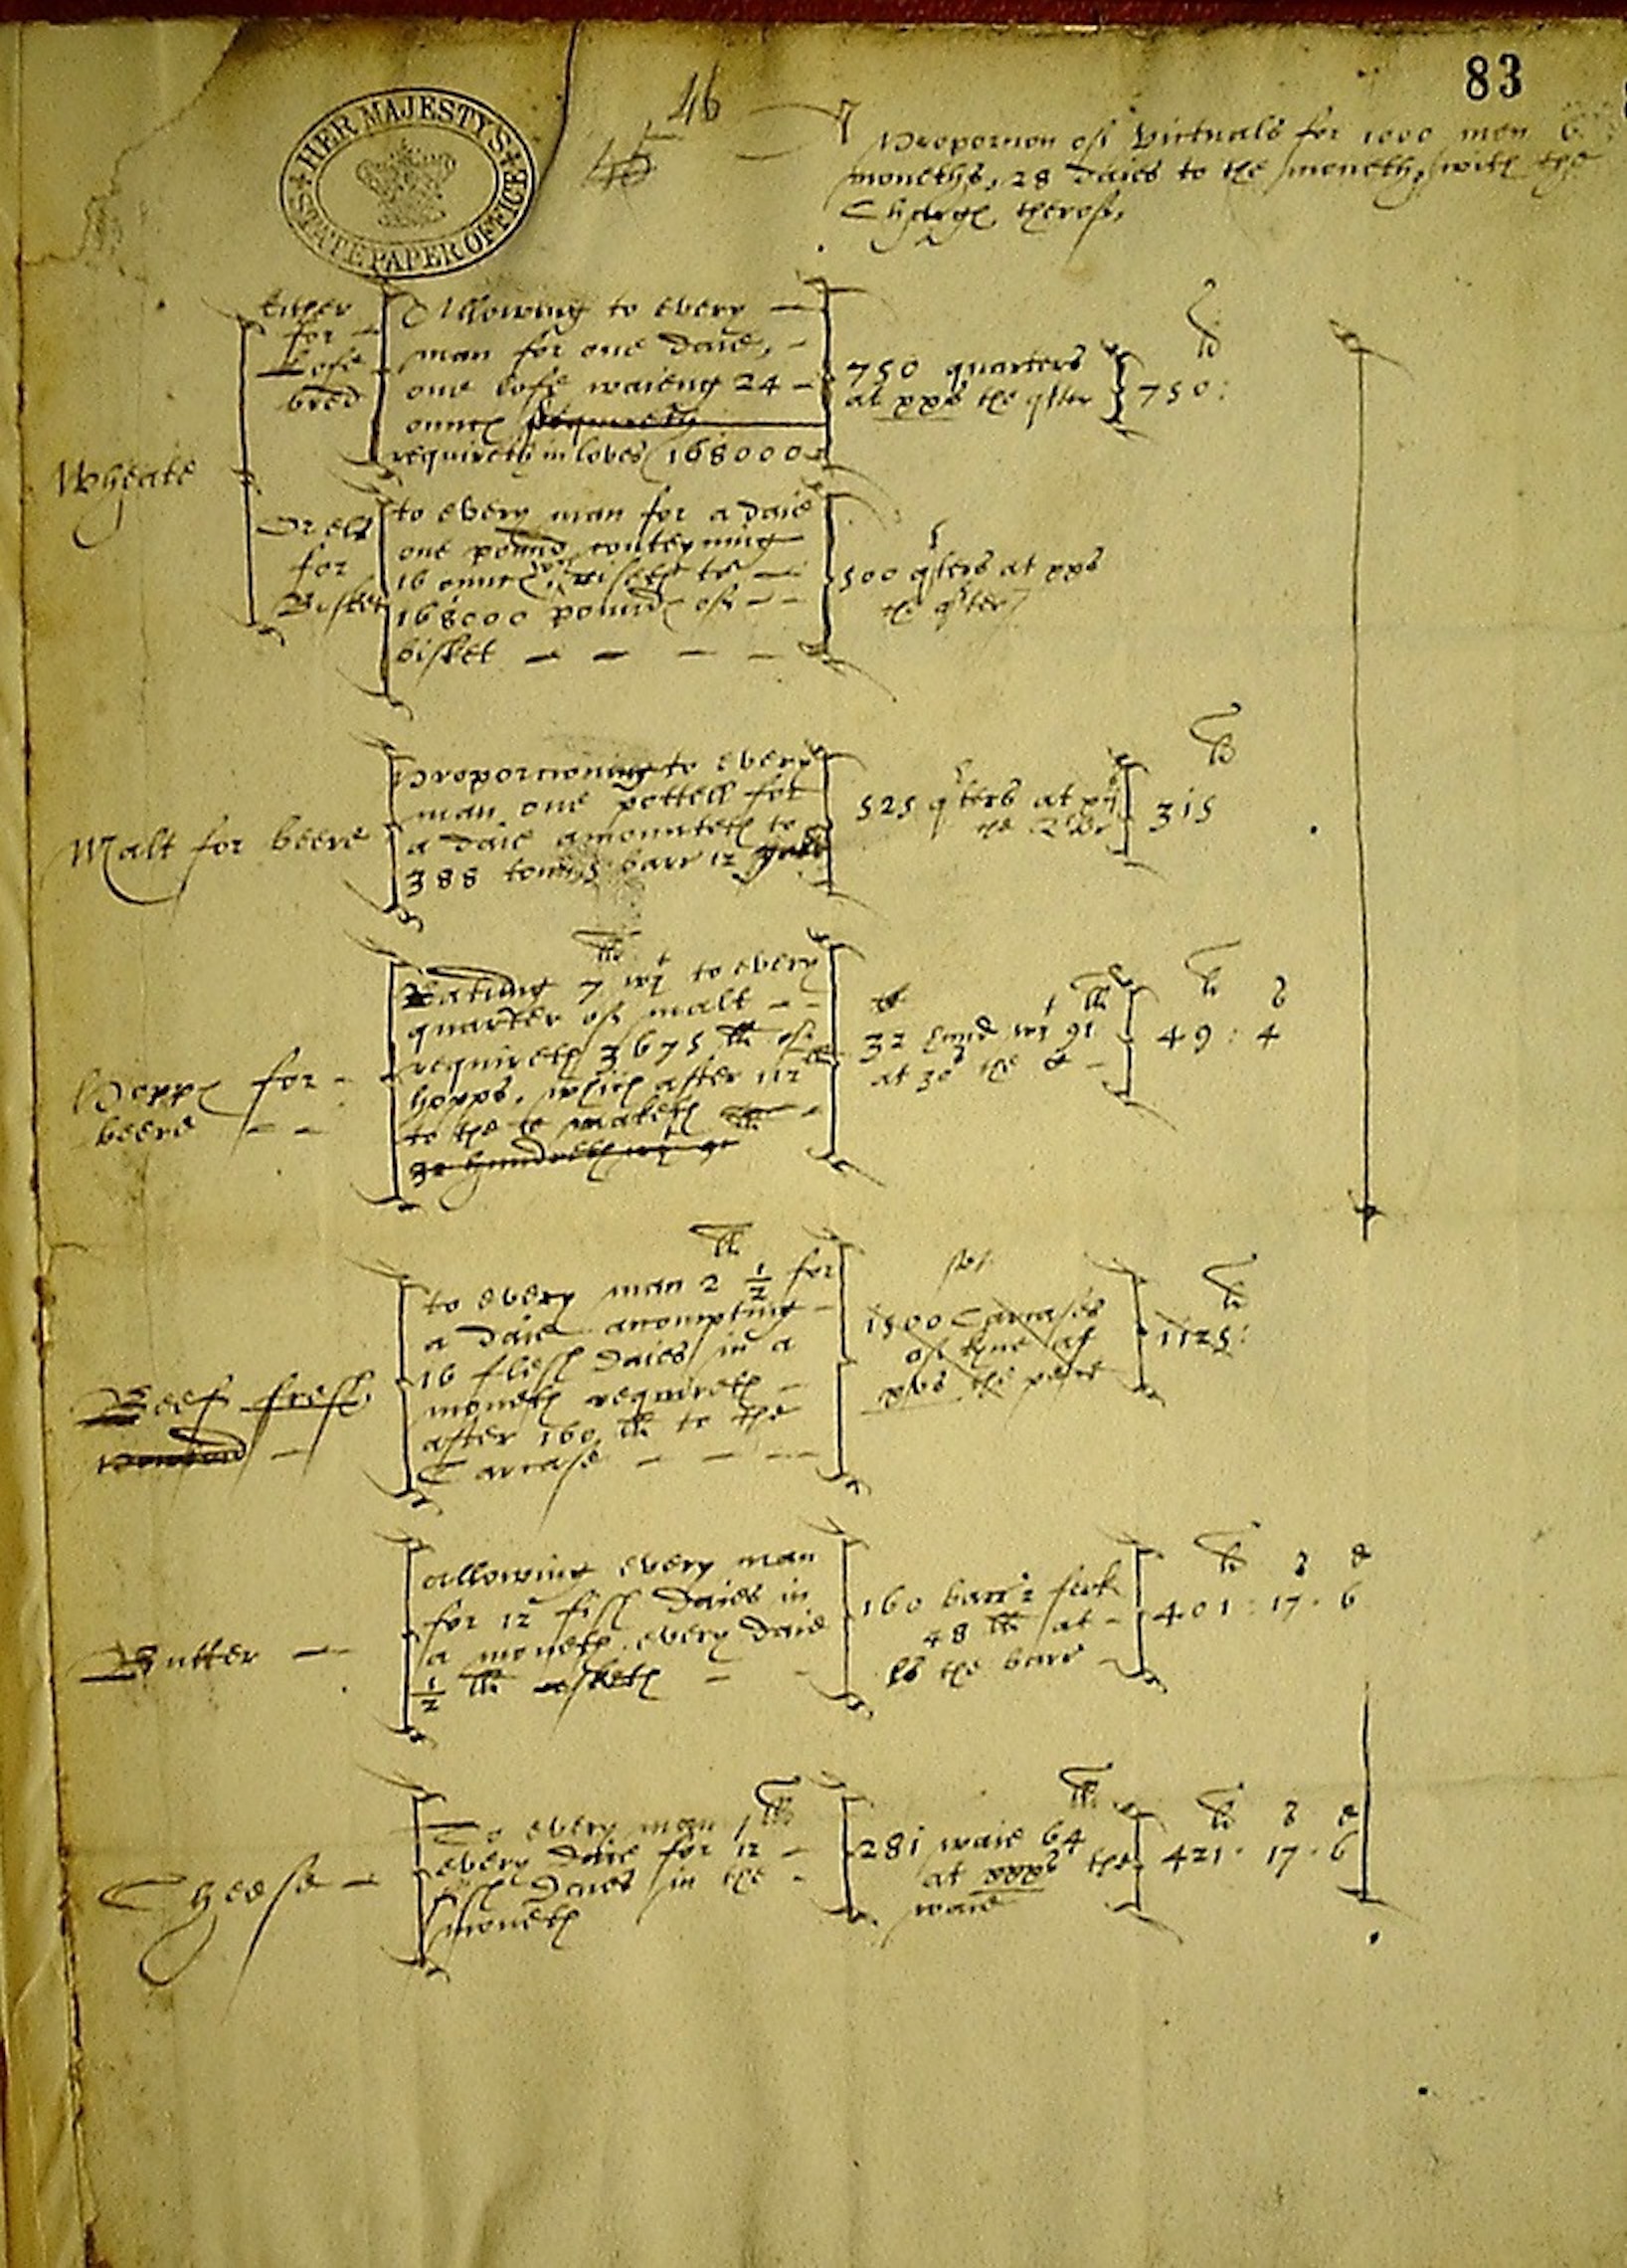 83
46
HER MAJESTY'S
STATE PAPER OFFICE
Proporcion of Victuals for 1000 men 6
moneths, 28 daies to the moneth, with the
Charge therof,
Wheate
Ether
for
Lofe
bred
Allowing to every
man for one daie,
one lofe waieng 24
ounces requireth
requireth in loves 168000
750 quarters
at xxs the qrter
li
750:
Or els
for
Bisket
to every man for a daie
one pound conteyning
16 ounces, riseth to
168000 pound of
bisket
500 qrters at xxs
the qrter
Malt for beere
Proporcioning to every
man one pottell for
a daie amounteth to
388 tonns barr 12
525 qrters at xijs
the
li
315
Hopps for
beere
Rating 7 li wt to every
quarter of malt
requireth 3675 li of
hopps, which after 112 li
to the c maketh
32 hundreth wt 91
32 hund wt 91 li
at 30s the c
li s
49 : 4
Beef fresh
to every man 2 1/2 li for
a daie accompting
16 flesh daies in a
moneth requireth
after 160 li to the
Carcase
1500 Carcases
of kyne at
xvs the pece
li
1125:
Butter
allowing every man
for 12 fish daies in
a moneth every daie
1/2 li asketh
160 barr 2 firk
48 li at
ls the barr
li s d
401 : 17 . 6
Cheese
To every man 1 li
every daie for 12
fish daies in the
moneth
281 waie 64 li
at xxxs the
waie
li s d
421 . 17 . 6